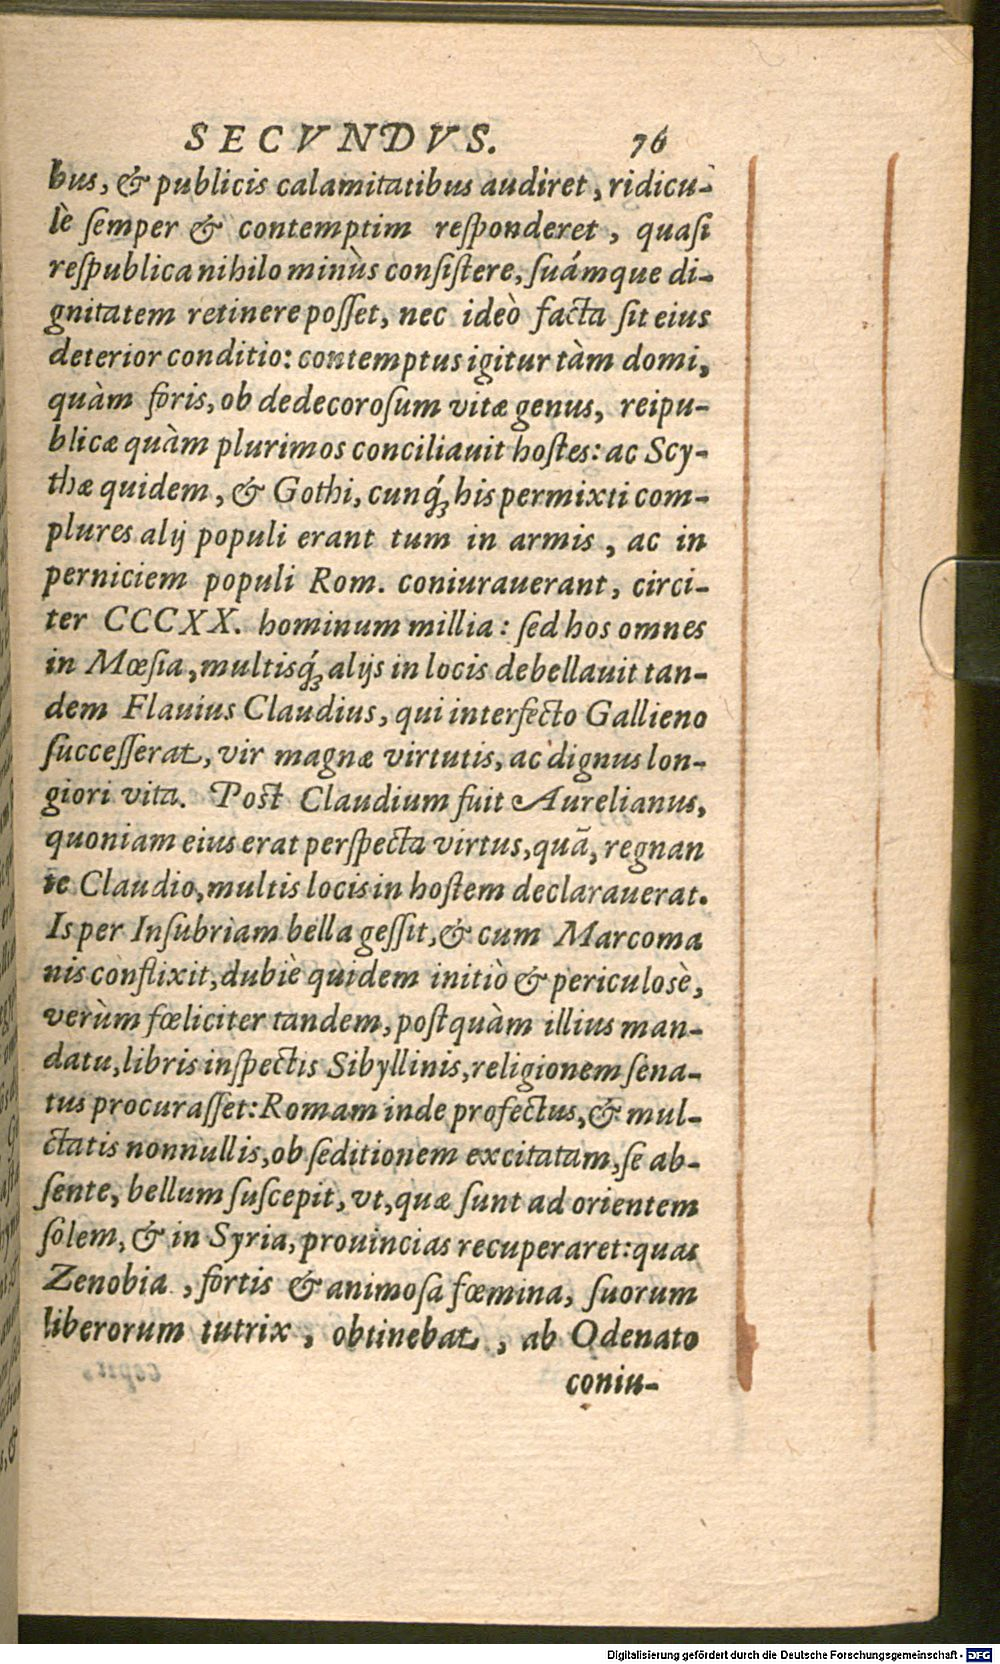 SECVNDVS. 76
bus, & publicis calamitatibus audiret, ridicu-
lè ſemper & contemptim reſponderet, quaſi
reſpublica nihilo minùs conſiſtere, ſuámque di-
gnitatem retinere poſſet, nec ideò facta ſit eius
deterior conditio: contemptus igitur tàm domi,
quàm foris, ob dedecoroſum vitæ genus, reipu-
blicæ quàm plurimos conciliauit hoſtes: ac Scy-
thæ quidem, & Gothi, cunq́ꝫ his permixti com-
plures alij populi erant tum in armis, ac in
perniciem populi Rom. coniurauerant, circi-
ter CCCXX. hominum millia: ſed hos omnes
in Mœſia, multisq́ꝫ alijs in locis debellauit tan-
dem Flauius Claudius, qui interfecto Gallieno
ſucceſſerat, vir magnæ virtutis, ac dignus lon-
giori vita. Poſt Claudium fuit Aurelianus,
quoniam eius erat perſpecta virtus, quā, regnan
te Claudio, multis locis in hoſtem declarauerat.
Is per Inſubriam bella geſſit, & cum Marcoma
nis conflixit, dubiè quidem initiò & periculosè,
verùm fœliciter tandem, poſtquàm illius man-
datu, libris inſpectis Sibyllinis, religionem ſena-
tus procuraſſet: Romam inde profectus, & mul-
ctatis nonnullis, ob ſeditionem excitatam, ſe ab-
ſente, bellum ſuſcepit, vt, quæ ſunt ad orientem
ſolem, & in Syria, prouincias recuperaret: quas
Zenobia, fortis & animoſa fœmina, ſuorum
liberorum tutrix, obtinebat, ab Odenato
coniu-
Digitalisierung gefördert durch die Deutsche Forschungsgemeinschaft - DFG